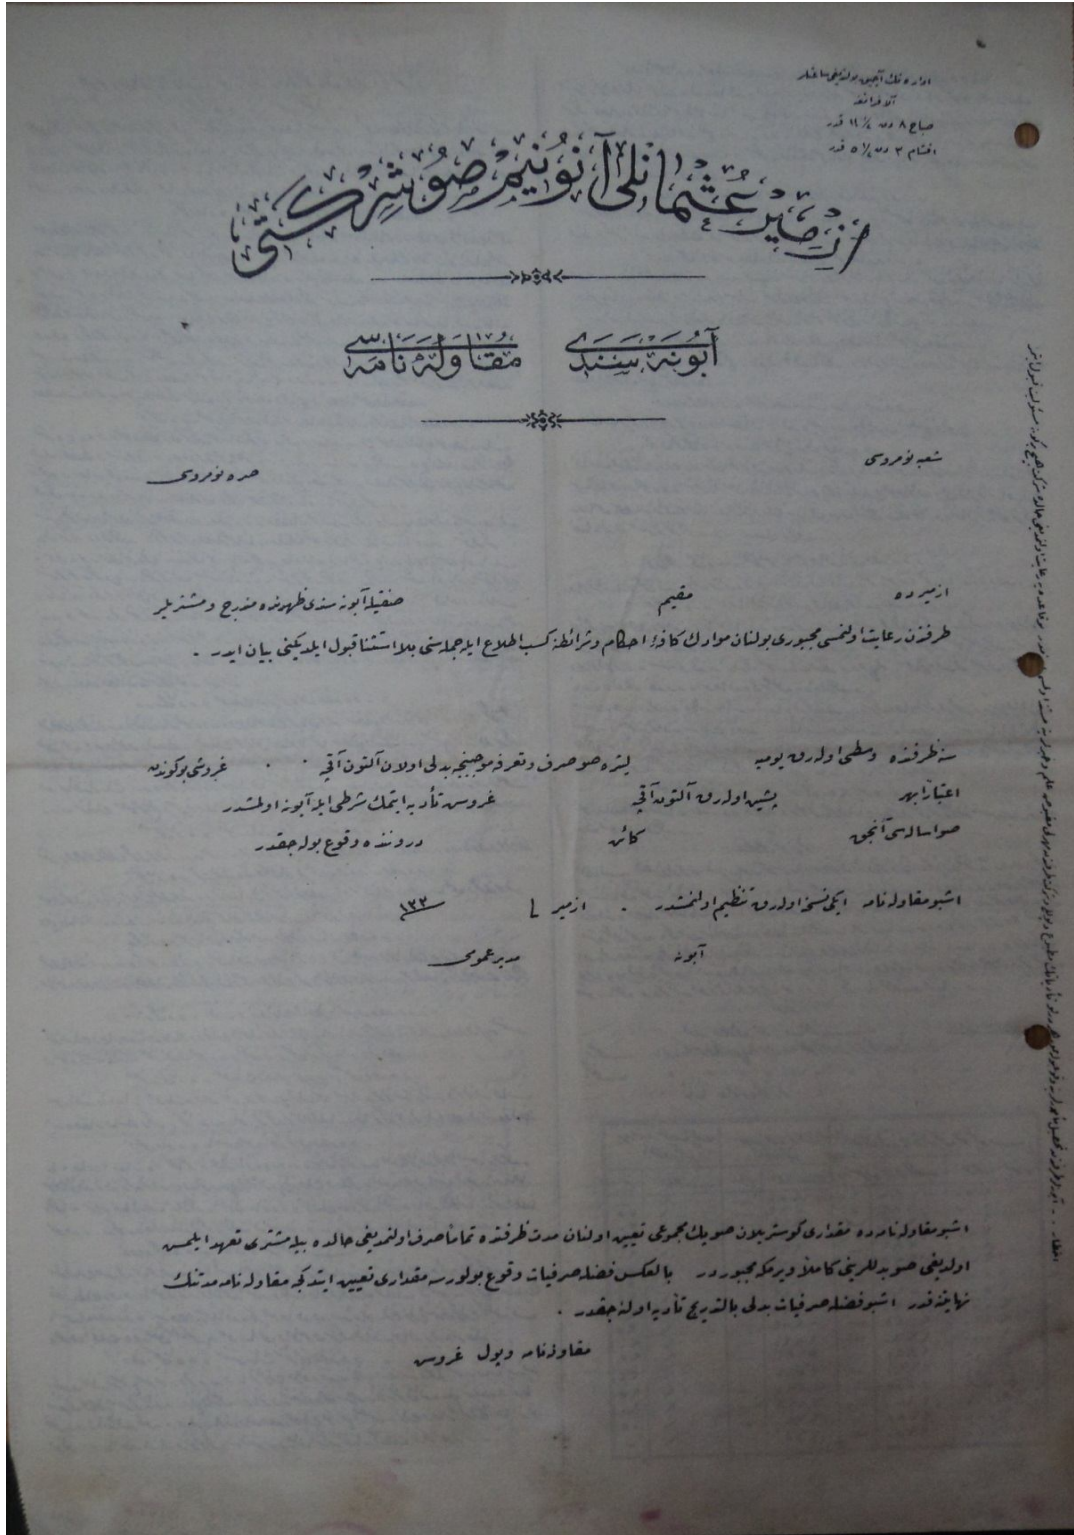 اداره‌نك آچيق بولنديغى ساعتلر
آلافرانغه
صباح ٨ دن ١١ ١/٢ قدر
اقشام ٣ دن ٥ ١/٢ قدر
ازمير عثمانلى آنونيم صو شركتى
آبونه سندى مقاوله‌نامه‌سى
شعبه نومروسى
صره نومروسى
ازميرده مقيم صفتيله آبونه سندى ظهرنده مندرج و مشتريلر
طرفندن رعايت اولنمسى مجبورى بولنان موادك كافه احكام و شرائطنه كسب اطلاع ايله جمله‌سنى بلا استثنا قبول ايلديكنى بيان ايدر .
سنه ظرفنده وسطى اوله‌رق يوميه ليتره صو صرف و تعرفه موجبنجه بدلى اولان آلتون آقچه غروشى بوكوندن
اعتباراً بهر پشين اوله‌رق آلتون آقچه غروش تأديه ايتمك شرطى ايله آبونه اولمشدر
صو اساله‌سى آنجق كائن دروننده وقوع بوله‌جقدر
اشبو مقاوله‌نامه ايكى نسخه اوله‌رق تنظيم اولنمشدر . ازمير فى ١٣٣
آبونه مدير عمومى
اشبو مقاوله‌نامه‌ده مقدارى كوستريلان صويك مجموعى تعيين اولنان مدت ظرفنده تماماً صرف اولنمديغى حالده بيله مشترى تعهد ايلمش
اولديغى صو بدللرينى كاملاً ويرمكه مجبوردر بالعكس فضله صرفيات وقوع بولورسه مقدارى تعيين ايتدكجه مقاوله‌نامه مدتنك
نهايتنه قدر اشبو فضله صرفيات بدلى بالتدريج تأديه اولنه‌جقدر .
مقاوله‌نامه و پول غروش